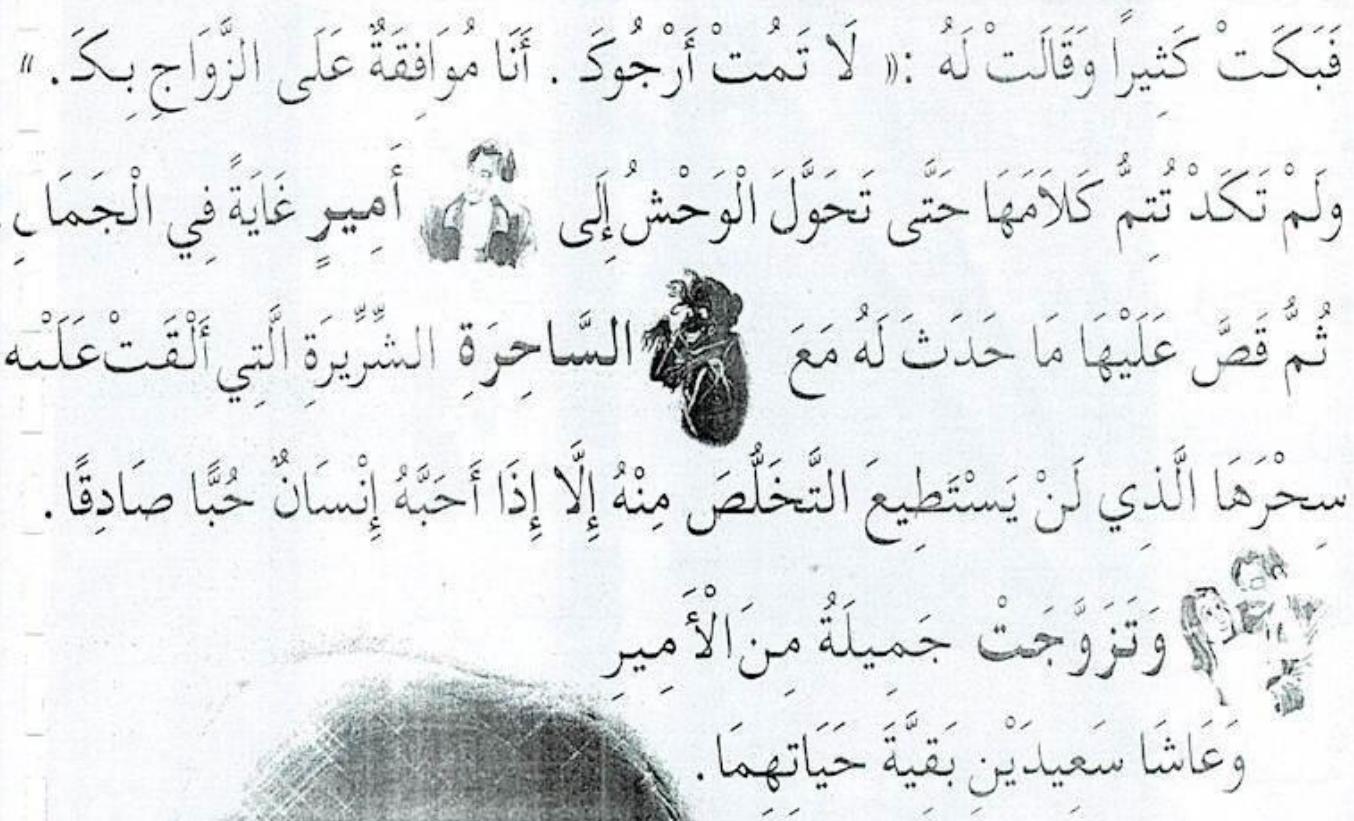 فَبَكَتْ كَثِيراً وَقَالَتْ لَهُ :« لَا تَمُتْ أَرْجُوكَ . أَنَا مُوَافِقَةٌ عَلَى الزَّوَاجِ بِكَ. »
وَلَمْ تَكَدْ تُتِمُّ كَلاَمَهَا حَتَّى تَحَوَّلَ الْوَحْشُ إِلَى أَمِيرٍ غَايَةً فِي الْجَمَالِ.
ثُمَّ قَصَّ عَلَيْهَا مَا حَدَثَ لَهُ مَعَ السَّاحِرَةِ الشِّرِّيرَةِ الَّتِي أَلْقَتْ عَلَيْهِ
سِحْرَهَا الَّذِي لَنْ يَسْتَطِيعَ التَّخَلُّصَ مِنْهُ إِلَّا إِذَا أَحَبَّهُ إِنْسَانٌ حُبًّا صَادِقًا.
وَتَزَوَّجَتْ جَمِيلَةُ مِنَ الْأَمِيرِ
وَعَاشَا سَعِيدَيْنِ بَقِيَّةَ حَيَاتِهِمَا.